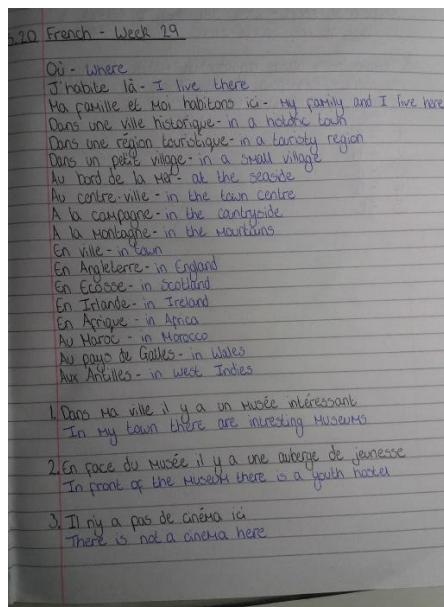 5.20 French - Week 29
Où - Where
J'habite là - I live there
Ma famille et Moi habitons ici - My family and I live here
Dans une ville historique - in a hotoric town
Dans une région touristique - in a touristy region
Dans un petit village - in a small village
Au bord de la Mer - at the seaside
Au centre-ville - in the town centre
A la campagne - in the cantryside
A la Montagne - in the Mountains
En ville - in town
En Angleterre - in England
En Ecosse - in Scotland
En Irlande - in Ireland
En Afrique - in Africa
Au Maroc - in Morocco
Au pays de Galles - in Wales
Aux Antilles - in West Indies
1. Dans Ma ville il y a un Musée intéressant
In My town there are intresting Museums
2. En face du Musée il y a une auberge de jeunesse
In front of the Museum there is a youth hostel
3. Il n'y a pas de cinéma ici
There is not a cinema here